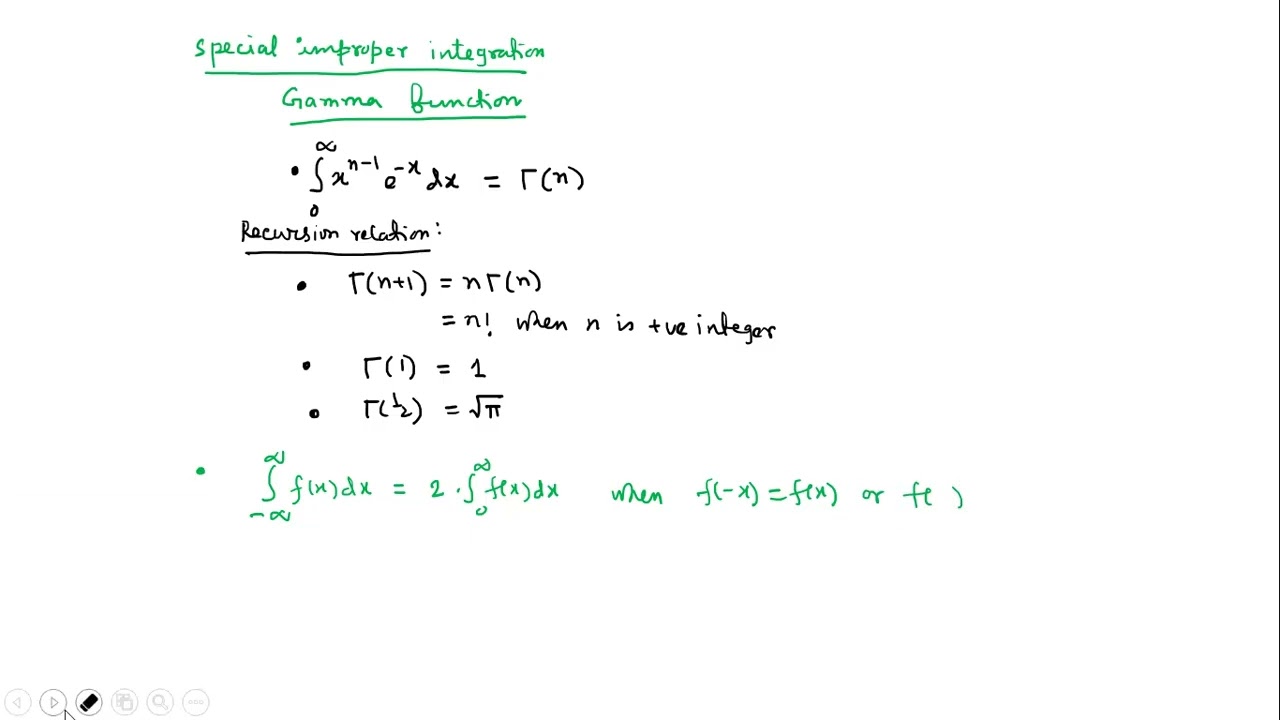 Special improper integration
Gamma function
• ∫₀^∞ x^(n-1) e^(-x) dx = Γ(n)
Recursion relation:
• Γ(n+1) = nΓ(n)
= n! when n is +ve integer
• Γ(1) = 1
• Γ(1/2) = √π
• ∫_{-∞}^{∞} f(x)dx = 2·∫₀^∞ f(x)dx when f(-x) = f(x) or f( )